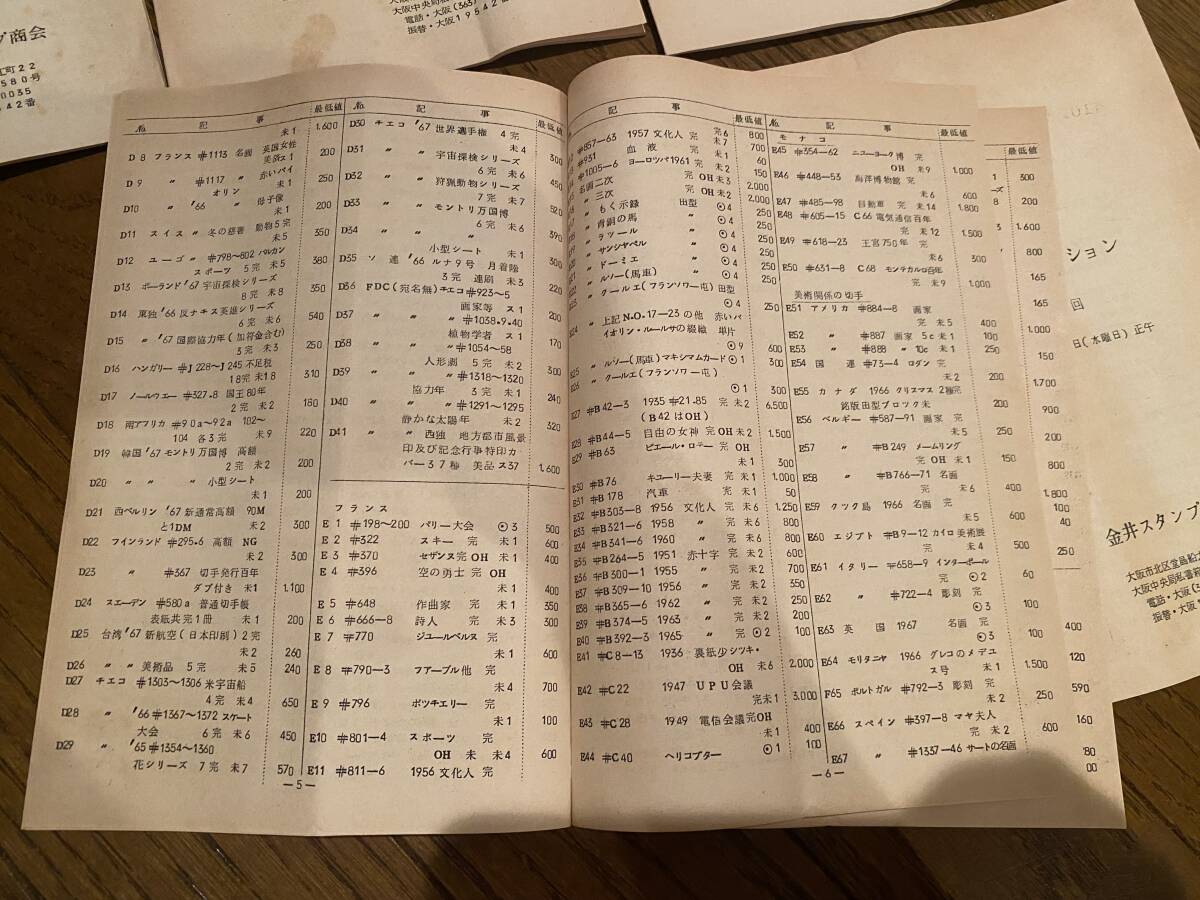 グ商会
江町22
580号
0035
42番
大阪中央局
電話・大阪(363)
振替・大阪19542番
No. 記事 最低値
未1 1.600
D8 フランス #1113 名画 英国女性
美婦女1 200
D9 〃 #1117 〃 赤いバイ
オリン 未1 250
D10 〃 '66 〃 母子像
未1 200
D11 スイス 〃 冬の慈善 動物5完
未5 350
D12 ユーゴ 〃 #798〜802 バルカン
スポーツ 5完 未5 380
D13 ポーランド '67宇宙探検シリーズ
8完 未8 350
D14 東独 '66 反ナチス英雄シリーズ
6完 未6 540
D15 〃 '67国際協力年(加符金含む)
3完 未3 250
D16 ハンガリー #J228〜J245不足税
18完未18 310
D17 ノールウエー #327.8 国王80年
2完 未2 180
D18 南アフリカ #90a〜92a 102〜
104 各3完 未9 220
D19 韓国 '67 モントリ万国博 高額
2完 未2 200
D20 〃 〃 〃 小型シート
未1 200
D21 西ベルリン '67 新通常高額 90M
と1DM 未2 300
D22 フインランド #295.6 高額 NG
未2 300
D23 〃 #367 切手発行百年
ダブ付き 未1 1.100
D24 スエーデン #580a 普通切手帳
表紙共完1冊 未1 200
D25 台湾 '67 新航空(日本印刷)2完
未2 260
D26 〃 〃 美術品 5完 未5 240
D27 チエコ #1303〜1306 米宇宙船
4完 未4 650
D28 〃 '66 #1367〜1372 スケート
大会 6完 未6 450
D29 〃 '65 #1354〜1360
花シリーズ 7完 未7 570
No. 記事 最低値
D30 チエコ '67 世界選手権 4完
未4 300
D31 〃 〃 宇宙探検シリーズ
6完 未6 450
D32 〃 〃 狩猟動物シリーズ
7完 未7 520
D33 〃 〃 モントリ万国博
6完 未6 390
D34 〃 〃 〃
小型シート 未1 300
D35 ソ連 '66 ルナ9号 月着陸
3完 連刷 未3 220
D36 FDC(宛名無)チエコ #923〜5
画家等 ス1 200
D37 〃 〃 #1038.9.40
植物学者 ス1 170
D38 〃 〃 #1054〜58
人形劇 5完 未2 300
D39 〃 〃 #1318〜1320
協力年 3完 未1 240
D40 〃 〃 #1291〜1295
静かな太陽年 未2 320
D41 〃 〃 西独 地方都市風景
印及び記念行事特印カ
バー37種 美品ス37 1.600
フランス
E1 #198〜200 パリー大会 ⊙3 500
E2 #322 スキー 完 未1 600
E3 #370 セザンヌ完 OH 未1 400
E4 #396 空の勇士 完 OH
未1 400
E5 #648 作曲家 完 未1 350
E6 #666—8 詩人 完 未3 300
E7 #770 ジユールベルヌ 完
未1 600
E8 #790—3 フアーブル他 完
未4 700
E9 #796 ボツチエリー 完
未1 100
E10 #801—4 スポーツ 完
OH 未 未4 600
E11 #811—6 1956文化人 完
—5—
記事 最低値
完6 800
#857—63 1957文化人 完 未7 700
#931 血液 完 未1 60
#1005—6 ヨーロツパ1961 完 未2 150
名画二次 完 OH未3 2.000
〃 三次 完 OH未2 2.000
〃 もく示録 田型 ⊙4 250
〃 青銅の馬 〃 ⊙4 250
〃 ラツール 〃 ⊙4 250
〃 サンジヤペル 〃 ⊙4 250
〃 ドーミエ 〃 ⊙4 250
〃 ルソー(馬車) 〃 ⊙4 250
〃 クールエ(フランソワー屯)田型
⊙4 250
E24 〃 上記N.O.17—23の他 赤いバ
イオリン・ルールサの綴織 単片
⊙9 600
E25 〃 ルソー(馬車)マキシムカード⊙1 300
E26 〃 クールエ(フランソワー屯)
⊙1 300
E27 #B42—3 1935 #21.85 完 未2 6.500
(B42はOH)
E28 #B44—5 自由の女神 完OH未2 1.500
E29 #B63 ピエール・ロテー 完 OH
未1 300
E30 #B76 キユーリー夫妻 完 未1 1.000
E31 #B178 汽車 完 未1 50
E32 #B303—8 1956 文化人 完 未6 1.250
E33 #B321—6 1958 〃 完 未6 800
E34 #B341—6 1960 〃 完 未6 800
E35 #B264—5 1951 赤十字 完 未2 600
E36 #B300—1 1955 〃 完 未2 700
E37 #B309—10 1956 〃 完 未2 350
E38 #B365—6 1962 〃 完 未2 250
E39 #B374—5 1963 〃 完 未2 200
E40 #B392—3 1965 〃 完 ⊙2 100
E41 #C8—13 1936 裏紙少シツキ・
OH 未6 2.000
E42 #C22 1947 UPU会議
完未1 3.000
E43 #C28 1949 電信会議完OH
未1 400
E44 #C40 ヘリコプター ⊙1 100
No. 記事 最低値
モナコ
E45 #354—62 ニユーヨーク博 完
OH 未9 1.000
E46 #448—53 海洋博物館 完
未6 600
E47 #485—98 自動車 完 未14 1.800
E48 #605—15 C66 電気通信百年
完 未12 1.500
E49 #618—23 王宮750年 完
未6 300
E50 #631—8 C68 モンテカルロ百年
完 未9 1.000
美術関係の切手
E51 アメリカ #884—8 画家
完 未5 400
E52 〃 #887 画家 5c 未1 100
E53 〃 #888 〃 10c 未1 250
E54 国連 #73—4 ロダン 完
未2 200
E55 カナダ 1966 クリスマス 2種完
銘版田型ブロツク未 200
E56 ベルギー #587—91 画家 完
未5 250
E57 〃 #B249 メームリング
完 OH 未1 150
E58 〃 #B766—71 名画
完 未6 400
E59 クツク島 1966 名画 完
未5 600
E60 エジプト #B9—12 カイロ美術展
完 未4 500
E61 イタリー #658—9 インターポール
完 ⊙2 60
E62 〃 #722—4 彫刻 完
⊙3 100
E63 英国 1967 名画 完
⊙3 100
E64 モリタニヤ 1966 グレコのメデユ
ス号 未1 1.500
F65 ポルトガル #792—3 彫刻 完
未2 250
E66 スペイン #397—8 マヤ夫人
完 未2 600
E67 〃 #1337—46 サートの名画
—6—
1 300
ーズ
8 200
3 1.600
165
165
1.000
150
1.700
900
200
800
1.800
100
40
250
400
120
590
160
80
00
ション
回
日(水曜日)正午
金井スタンプ
大阪市北区堂島船
大阪中央局私書箱
電話・大阪(3
振替・大阪